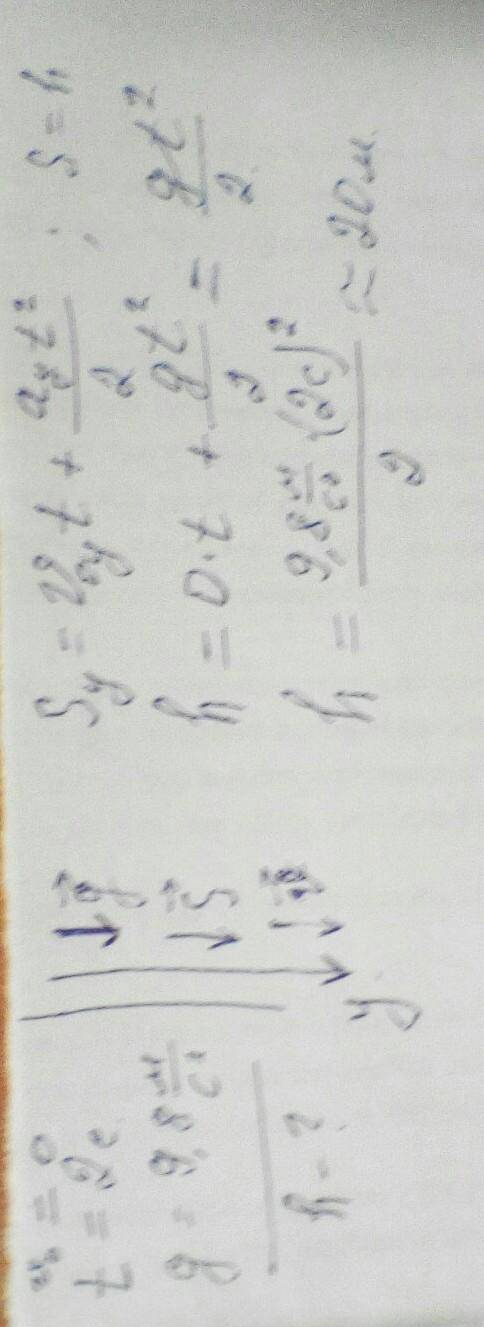 v₀ = 0
t = 2c
g = 9,8 м/c²
h - ?
g⃗
S⃗
v⃗
y
S_y = v₀_y t + a_y t²/2 ; S = h
h = 0·t + gt²/2 = gt²/2
h = 9,8 м/c² (2c)²/2 ≃ 20м